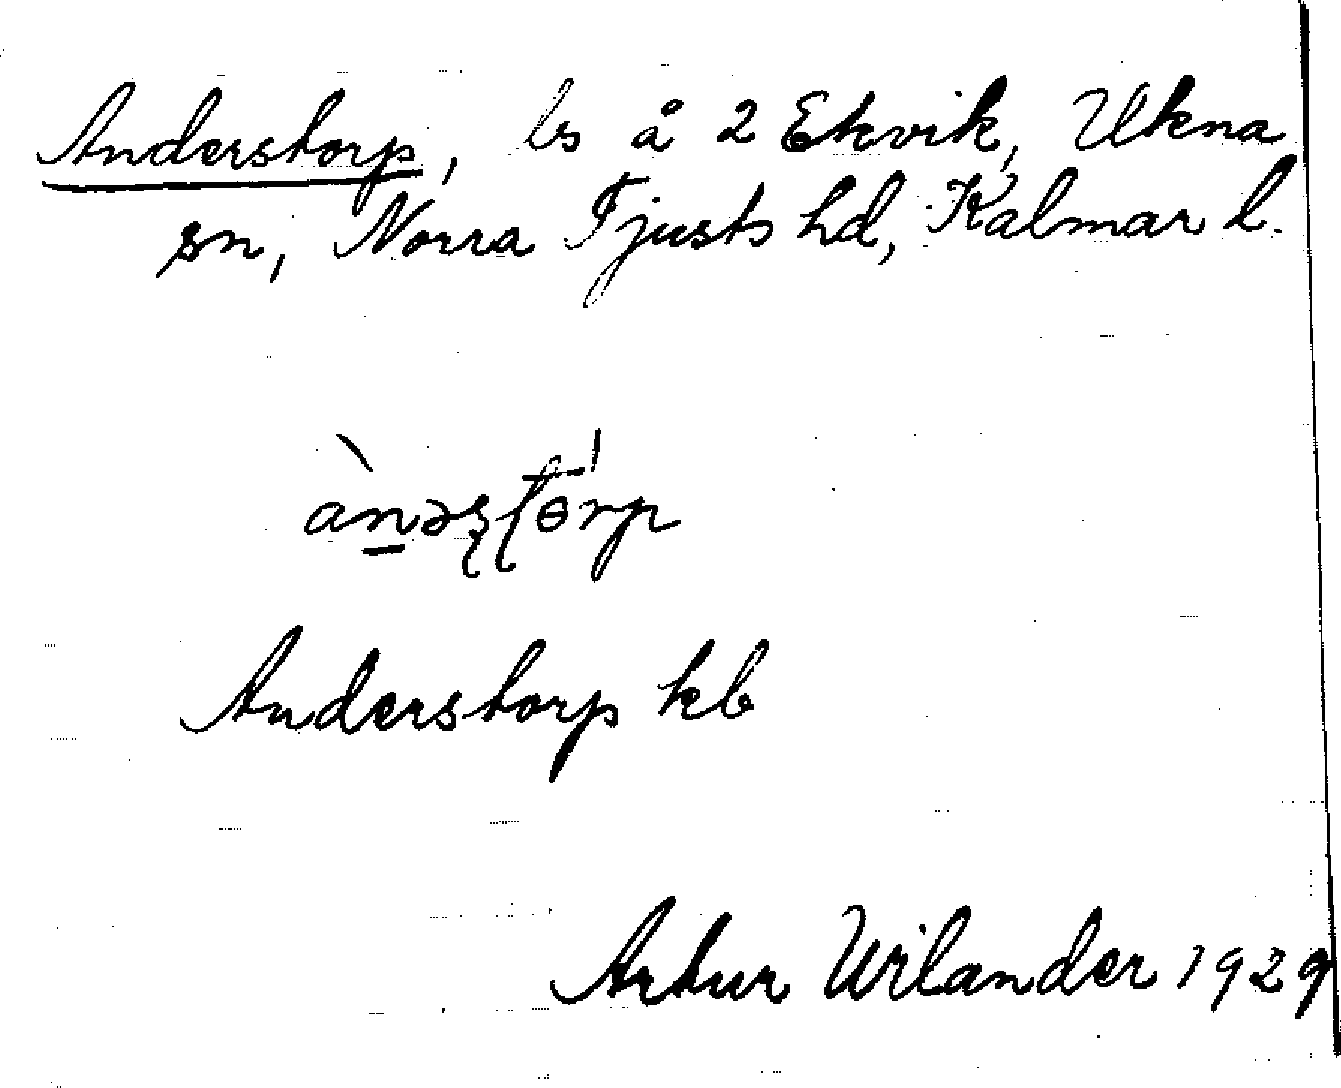 Anderstorp, ls å 2 Ekvik, Ukna
sn, Norra Tjusts hd, Kalmar l.
ànəʂʈɵ́rp
Anderstorp kb
Artur Wilander 1929